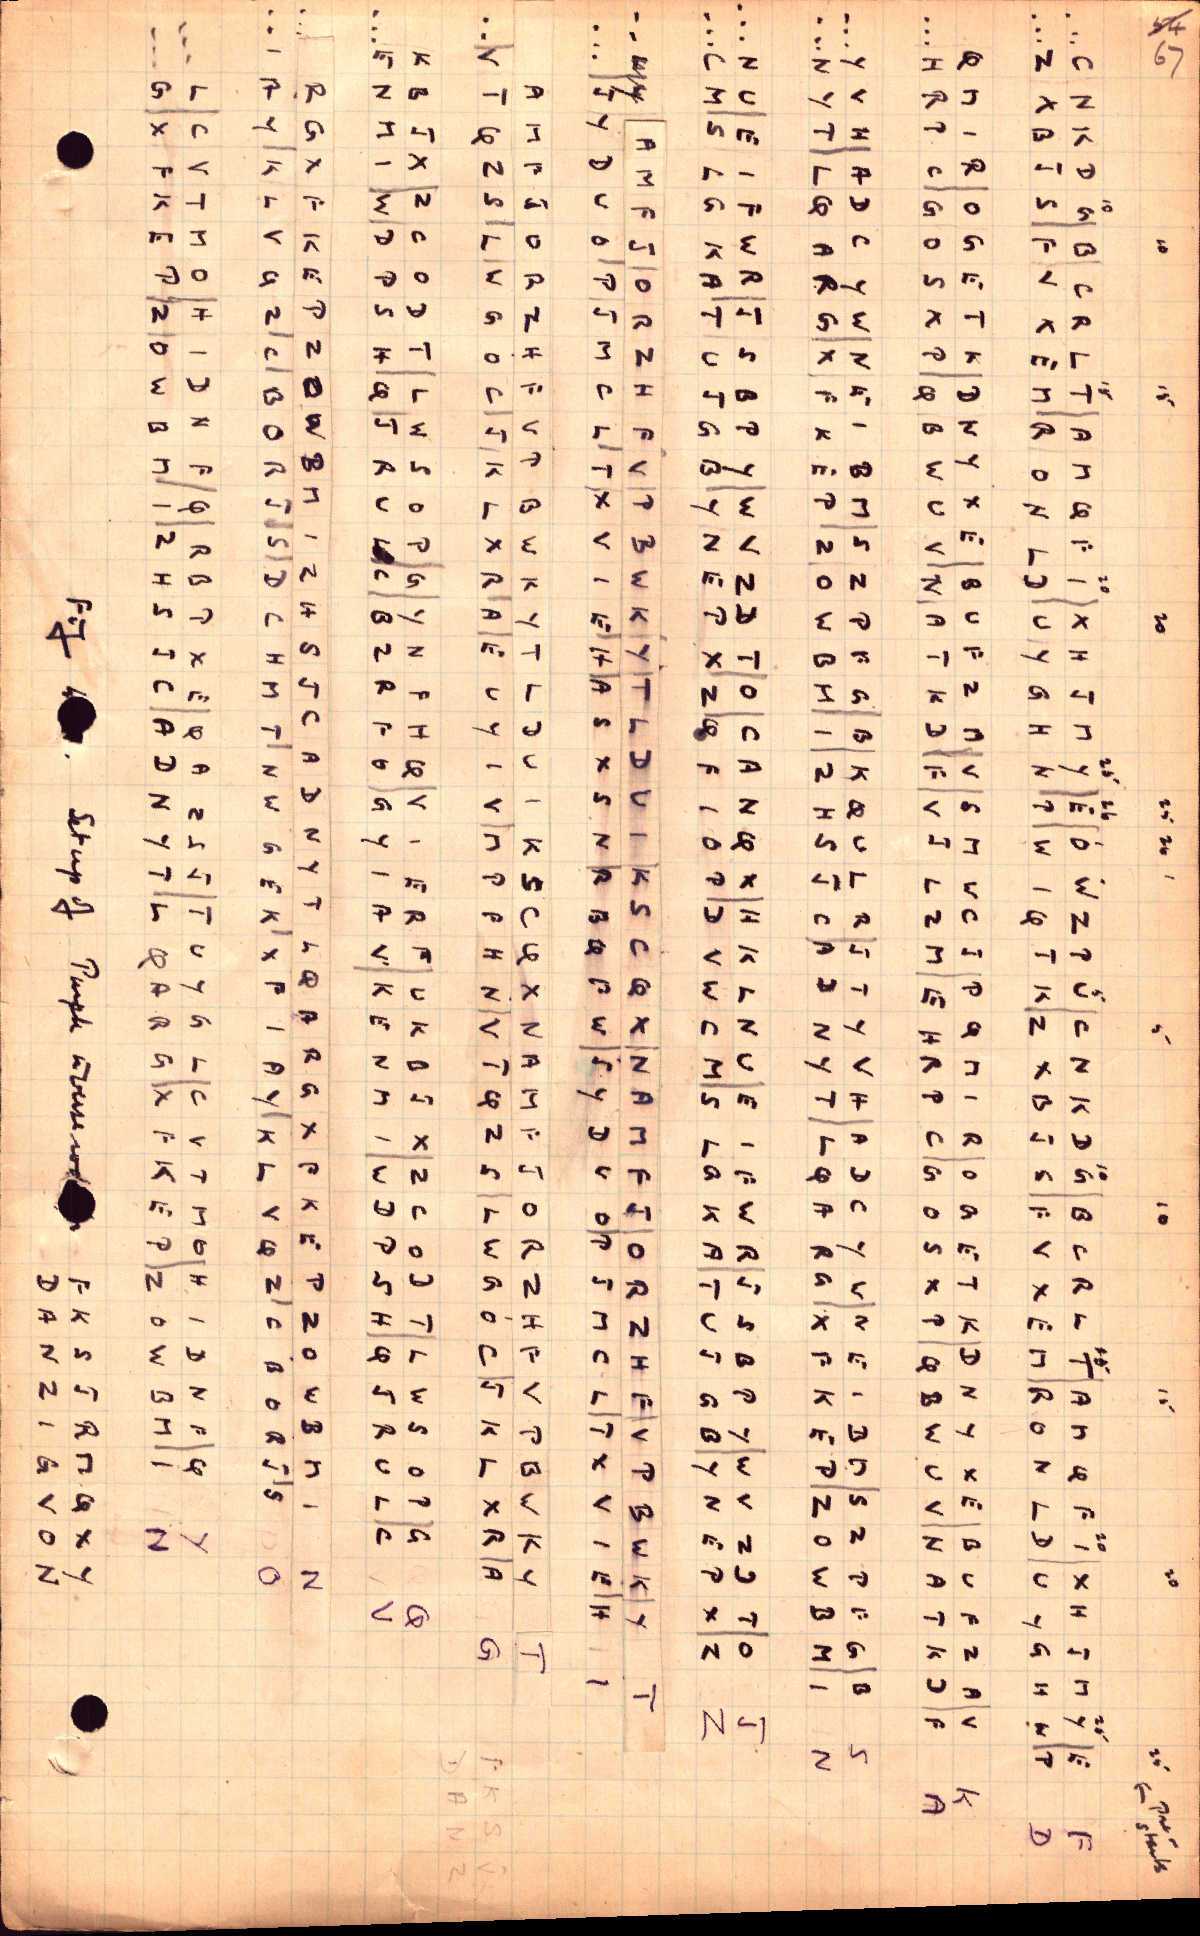 67
10 15 20 25 26 1 5 10 15 20 25 ← Pre-starts
10 15 20 25 26 1 5 10 15 20 25
...C N K D G|B C R L T|A M Q F I|X H J M Y|E|O W Z P U|C N K D G|B C R L T|A M Q F I|X H J M Y|E F
...Z X B J S|F V X E M|R O N L D|U Y G H N|P|W I Q T K|Z X B J S|F V X E M|R O N L D|U Y G H N|P D
Q M I R|O G E T K|D N Y X E|B U F Z A|V|S M W C J|P Q M I R|O G E T K|D N Y X E|B U F Z A|V K
...H R P C|G O S X P|Q B W U V|N A T K D|F|V J L Z M|E H R P C|G O S X P|Q B W U V|N A T K D|F A
...Y V H|A D C Y W|N E I B M|S Z P F G|B|K Q U L R|J T Y V H|A D C Y W|N E I B M|S Z P F G|B S
...N Y T|L Q A R G|X F K E P|Z O W B M|I|Z H S J C|A D N Y T|L Q A R G|X F K E P|Z O W B M|I N
...N U|E I F W R|J S B P Y|W V Z D T|O|C A N Q X|H K L N U|E I F W R|J S B P Y|W V Z D T|O J
...C M|S L G K A|T U J G B|Y N E P X|Z|Q F I O P|D V W C M|S L G K A|T U J G B|Y N E P X|Z Z
A M F J|O R Z H F V|P B W K|Y|T L D U I|K S C Q X|N A M F J|O R Z H F|V P B W K|Y T
...J|Y D U O|P J M C L|T X V I E|H|A S X S N|R B Q F W|J Y D U O|P J M C L|T X V I E|H I
A M F J O R Z H F V P B W K Y T L D U I K S C Q X N A M F J O R Z H F V P B W K Y T
..|V T Q Z S|L|W G O C|J|K L X R|A|E U Y I V|M P F H N|V T Q Z S|L W G O C|J K L X R|A G
F K S J
D A N Z
K B J X|Z C O D T|L W S O P|G|Y N F H Q|V I E R F|U K B J X|Z C O D T|L W S O P|G Q
...E N M I|W|D P S H|Q|J R U L|C|B Z R F O|G Y I A V|K E N M I|W D P S H|Q J R U L|C V
... R G X F K E P Z O W B M I Z H S J C A D N Y T L Q A R G X F K E P Z O W B M I N
..I A Y|K L V Q Z|C|B O R J|S|D C H M T|N W G E K|X F I A Y|K L V Q Z|C B O R J|S O
... L|C V T M O|H I D N F|Q|R B P X E|Q A Z S J|T U Y G L|C V T M O|H I D N F|Q Y
... G|X F K E P|Z O W B M|I|Z H S J C|A D N Y T|L Q A R G|X F K E P|Z O W B M|I N
Fig . Set up of Purple inverse F K S J R M Q X Y
D A N Z I G V O N